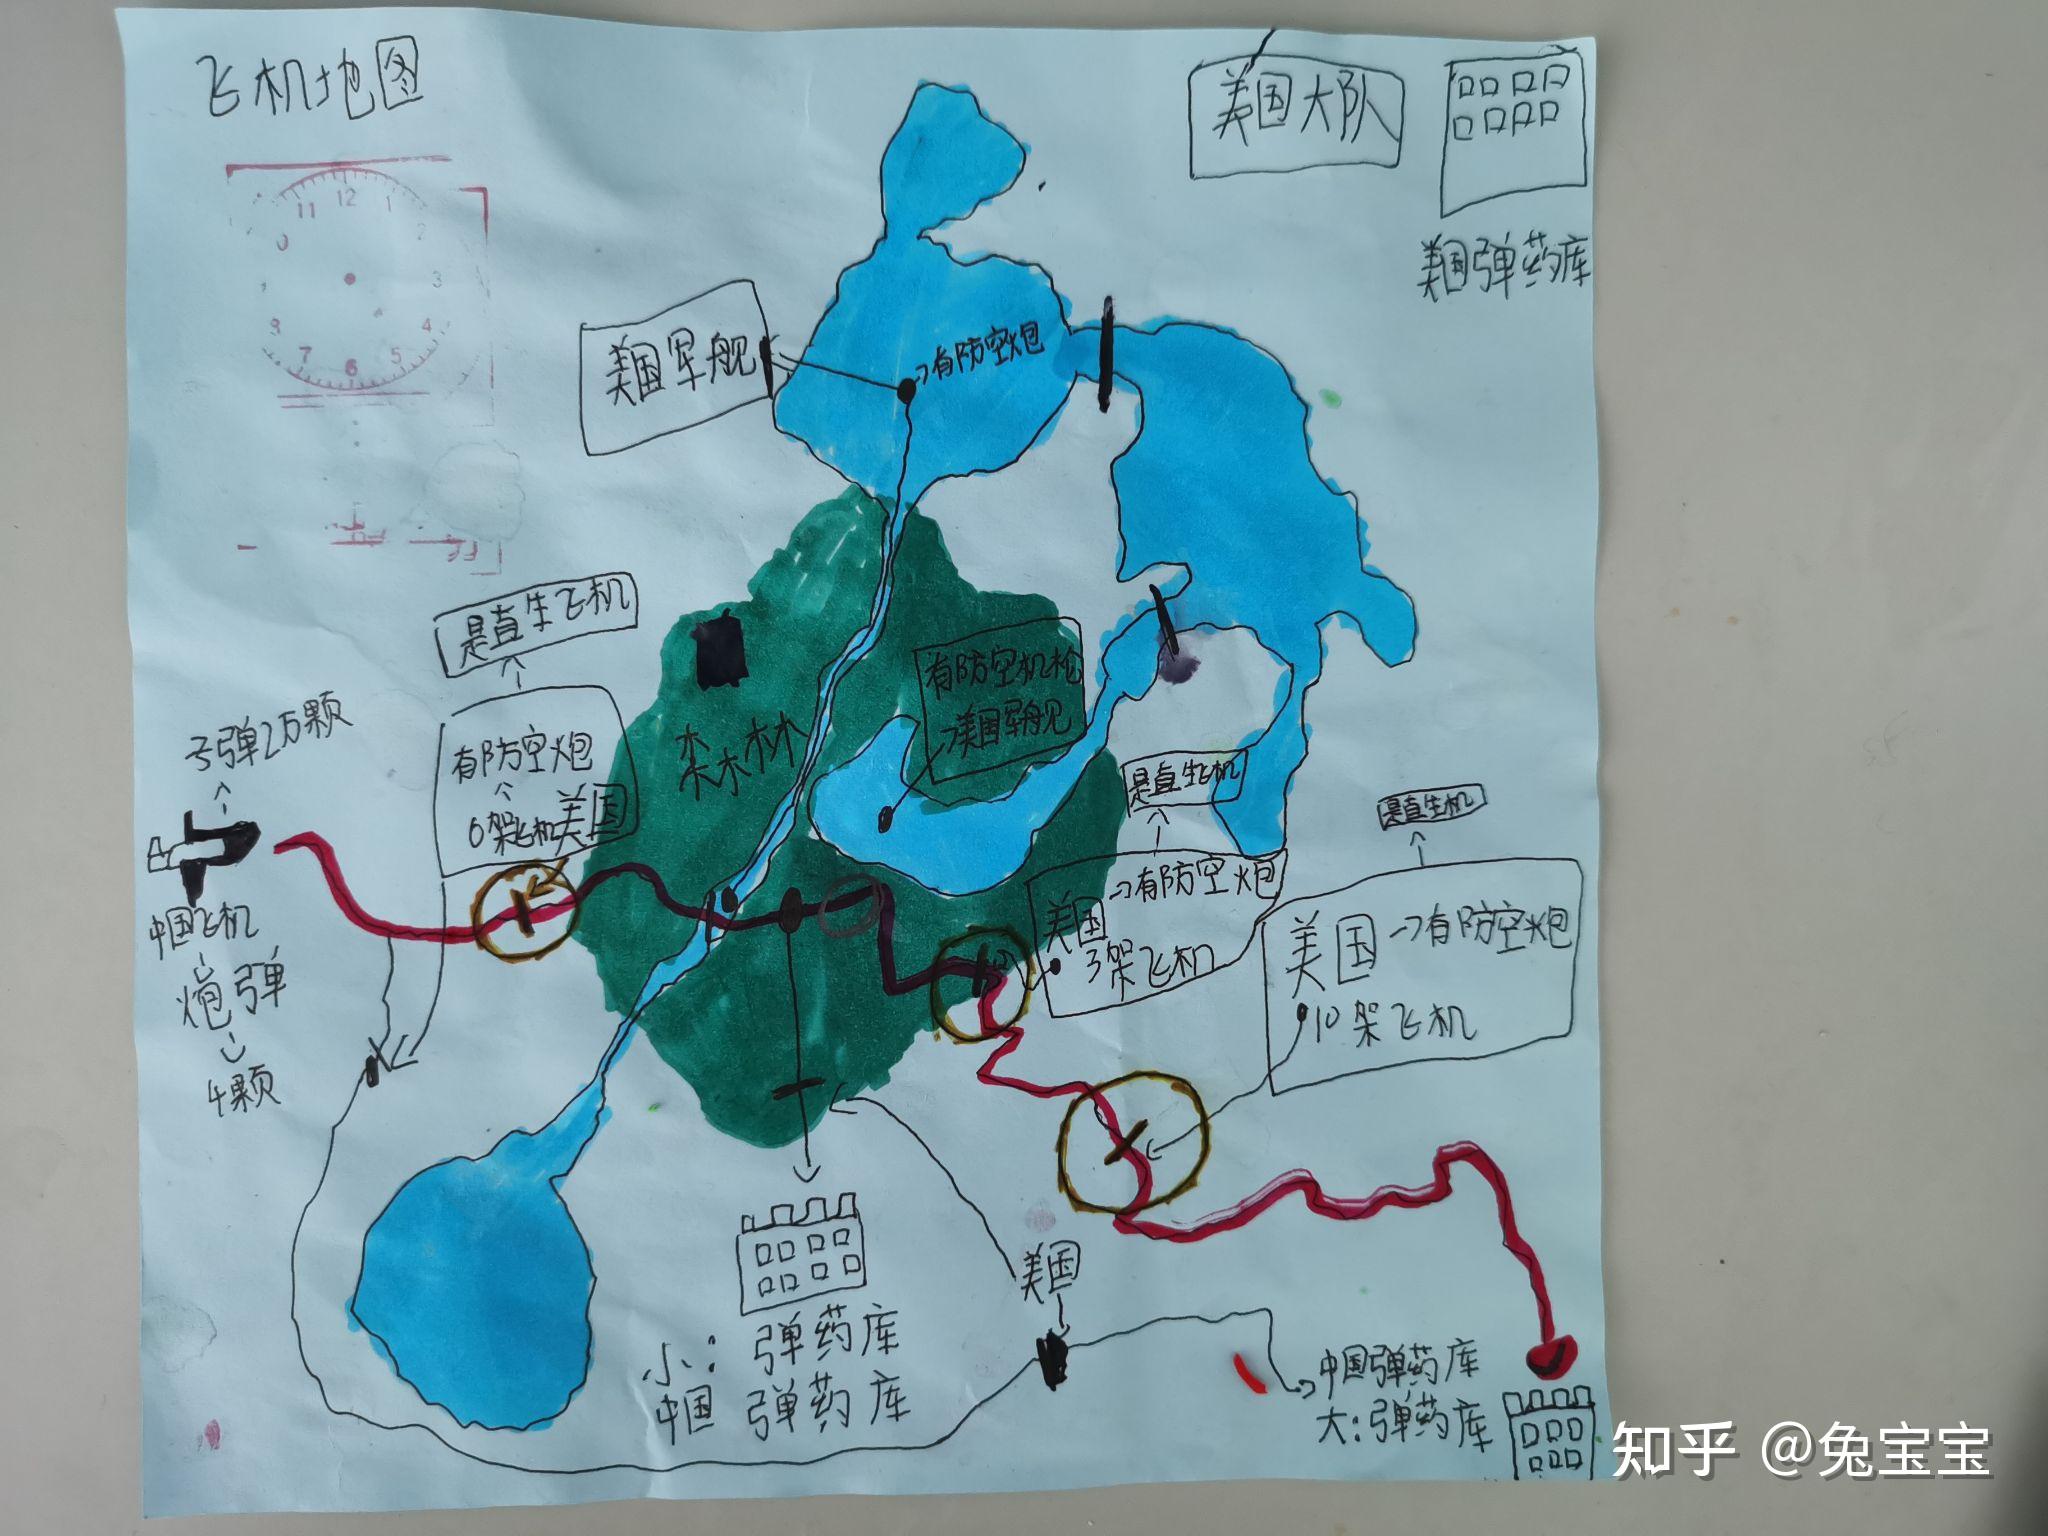 飞机地图
美国大队
美国弹药库
11 12 1
2
3
4
5
6
7
8
美国军舰
→有防空炮
是直生飞机
有防空炮
6架飞机美国
子弹2万颗
中国飞机
炮弹
4颗
森林
有防空机枪
→美国军舰
是直生飞机
美国→有防空炮
3架飞机
是直生机
美国→有防空炮
10架飞机
美国
小：弹药库
中国 弹药库
中国弹药库
大：弹药库
知乎 @兔宝宝